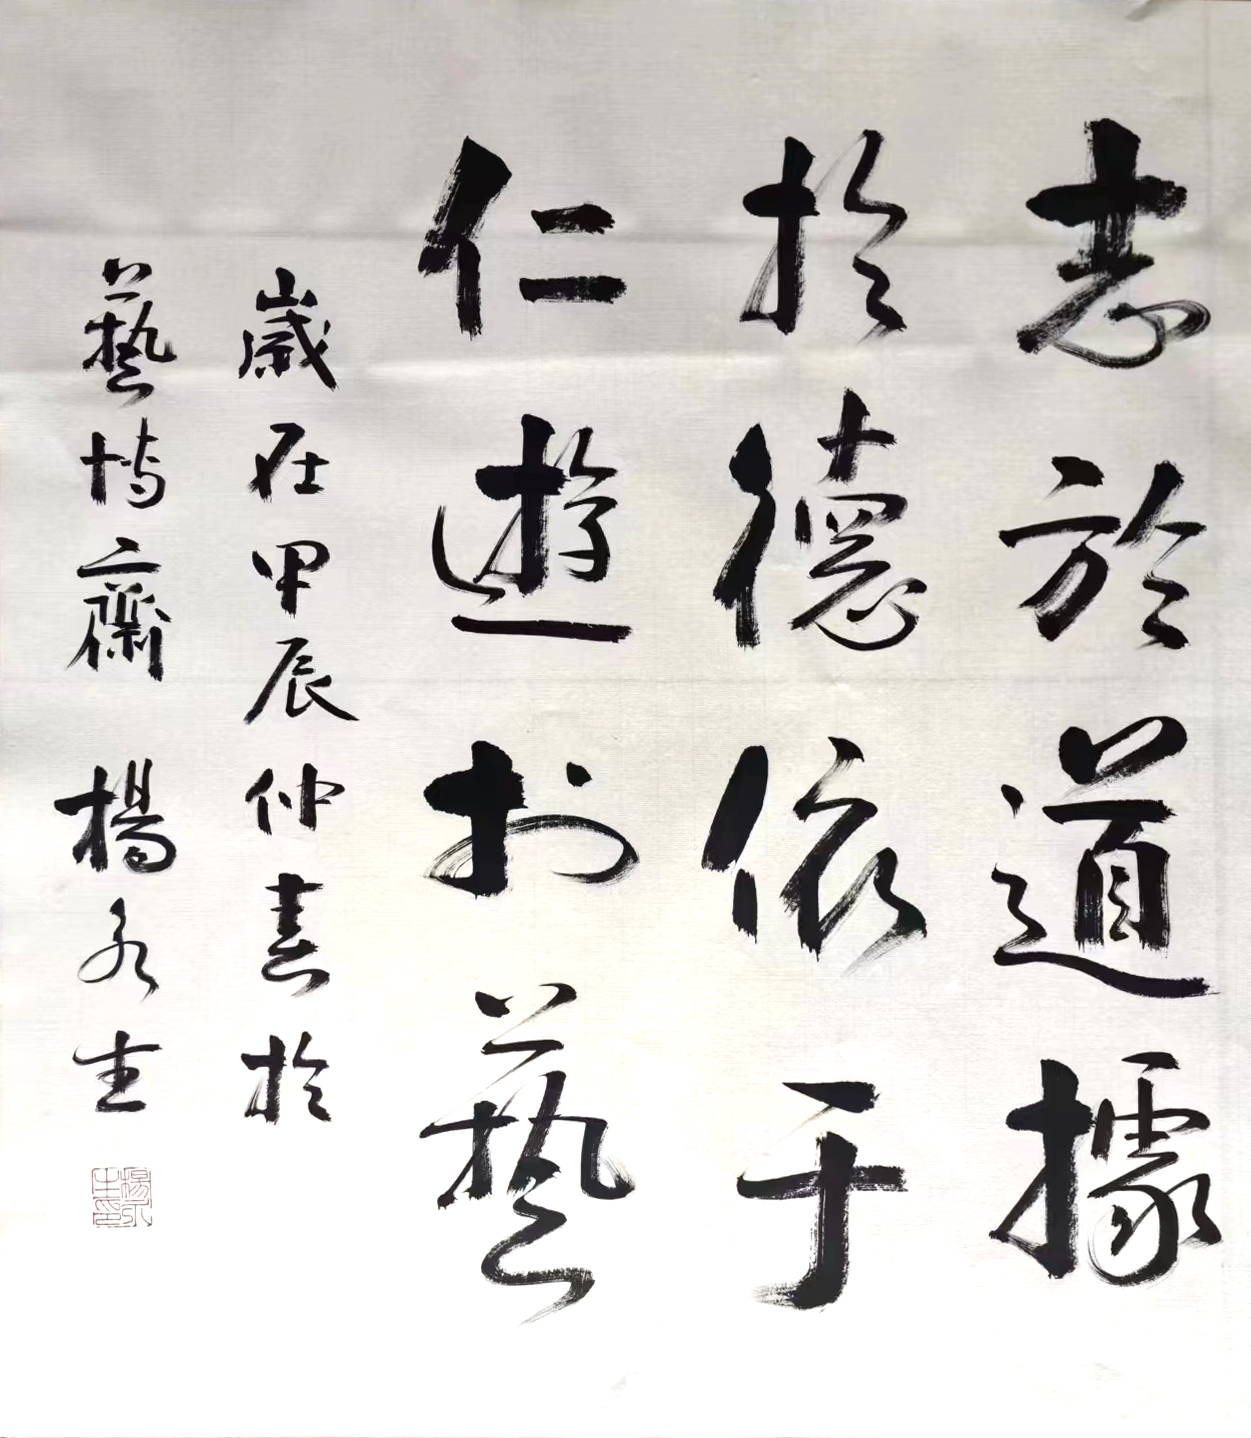 志於道據
於德依于
仁遊於藝
歲在甲辰仲春於
藝博齋 楊永生
楊永生印